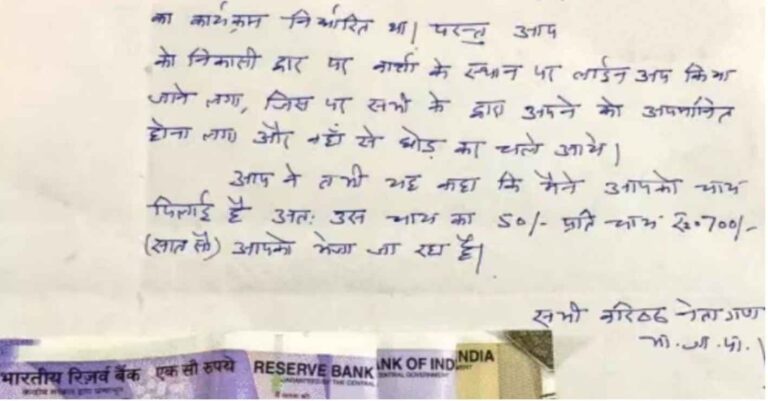 का कार्यक्रम निर्धारित था। परन्तु आप
को निकासी द्वार पर वार्ता के स्थान पर लाईन अप किया
जाने लगा, जिस पर सभी के द्वारा अपने को अपमानित
होना लगा और वहाँ से छोड़ का चले आये।
आप ने तभी यह कहा कि मैंने आपको चाय
पिलाई है अतः उस चाय का 50/- प्रति चाय रू. 700/-
(सात सौ) आपको भेजा जा रहा है।
सभी वरिष्ठ नेता गण
भा. ज. पा.
भारतीय रिज़र्व बैंक एक सौ रुपये RESERVE BANK NK OF IND NDIA